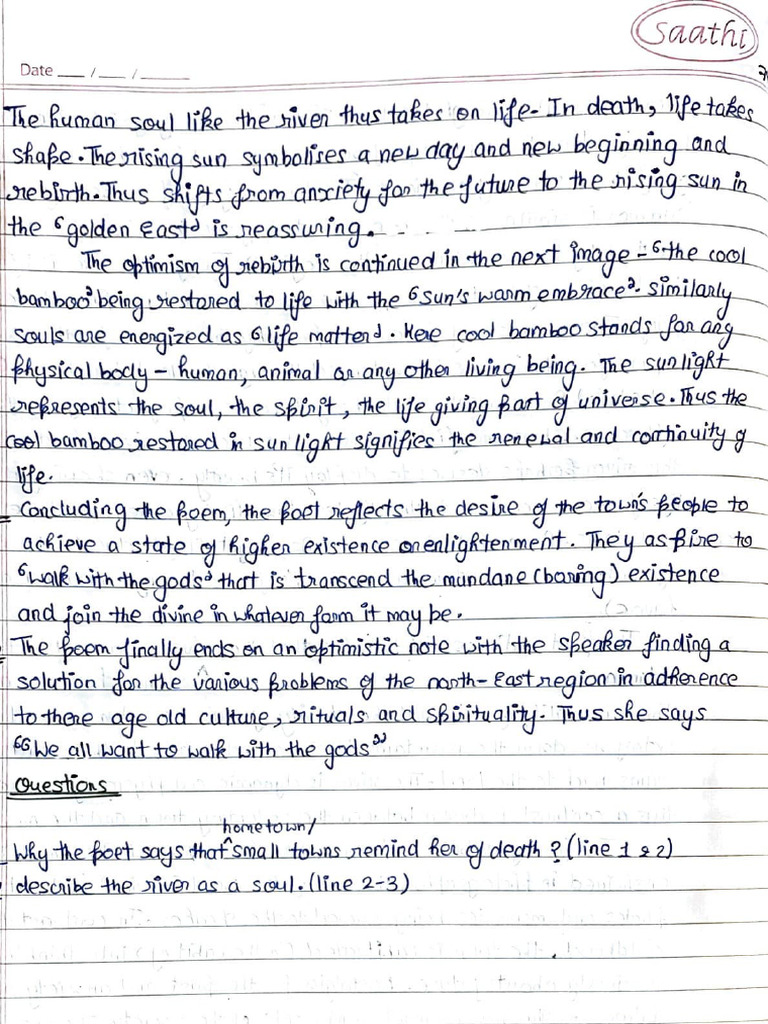 Saathi
Date ___/___/_____
The human soul like the river thus takes on life- In death, life takes
shape. The rising sun symbolises a new day and new beginning and
rebirth. Thus shifts from anxiety for the future to the rising sun in
the 'golden East' is reassuring.
The optimism of rebirth is continued in the next image - 'the cool
bamboo' being restored to life with the 'sun's warm embrace'. similarly
souls are energized as 'life matter'. Here cool bamboo stands for any
physical body - human, animal or any other living being. The sunlight
represents the soul, the spirit, the life giving part of universe. Thus the
cool bamboo restored in sunlight signifies the renewal and continuity of
life.
Concluding the poem, the poet reflects the desire of the town's people to
achieve a state of higher existence or enlightenment. They aspire to
'walk with the gods' that is transcend the mundane (boring) existence
and join the divine in whatever form it may be.
The poem finally ends on an optimistic note with the speaker finding a
solution for the various problems of the north-East region in adherence
to there age old culture, rituals and spirituality. Thus she says
"We all want to walk with the gods"
Questions
hometown/
Why the poet says that ^small towns remind her of death ? (line 1 & 2)
describe the river as a soul. (line 2-3)